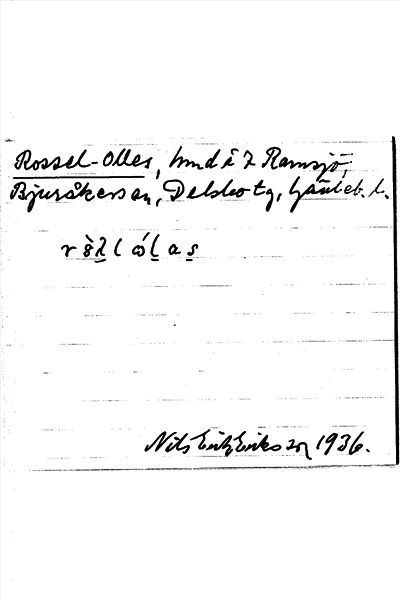 Rossel-Olles, hmd i 7 Ramsjö,
Bjuråkers sn, Delsbo tg, Gävleb. l.
Nils Erik Eriksson 1936.